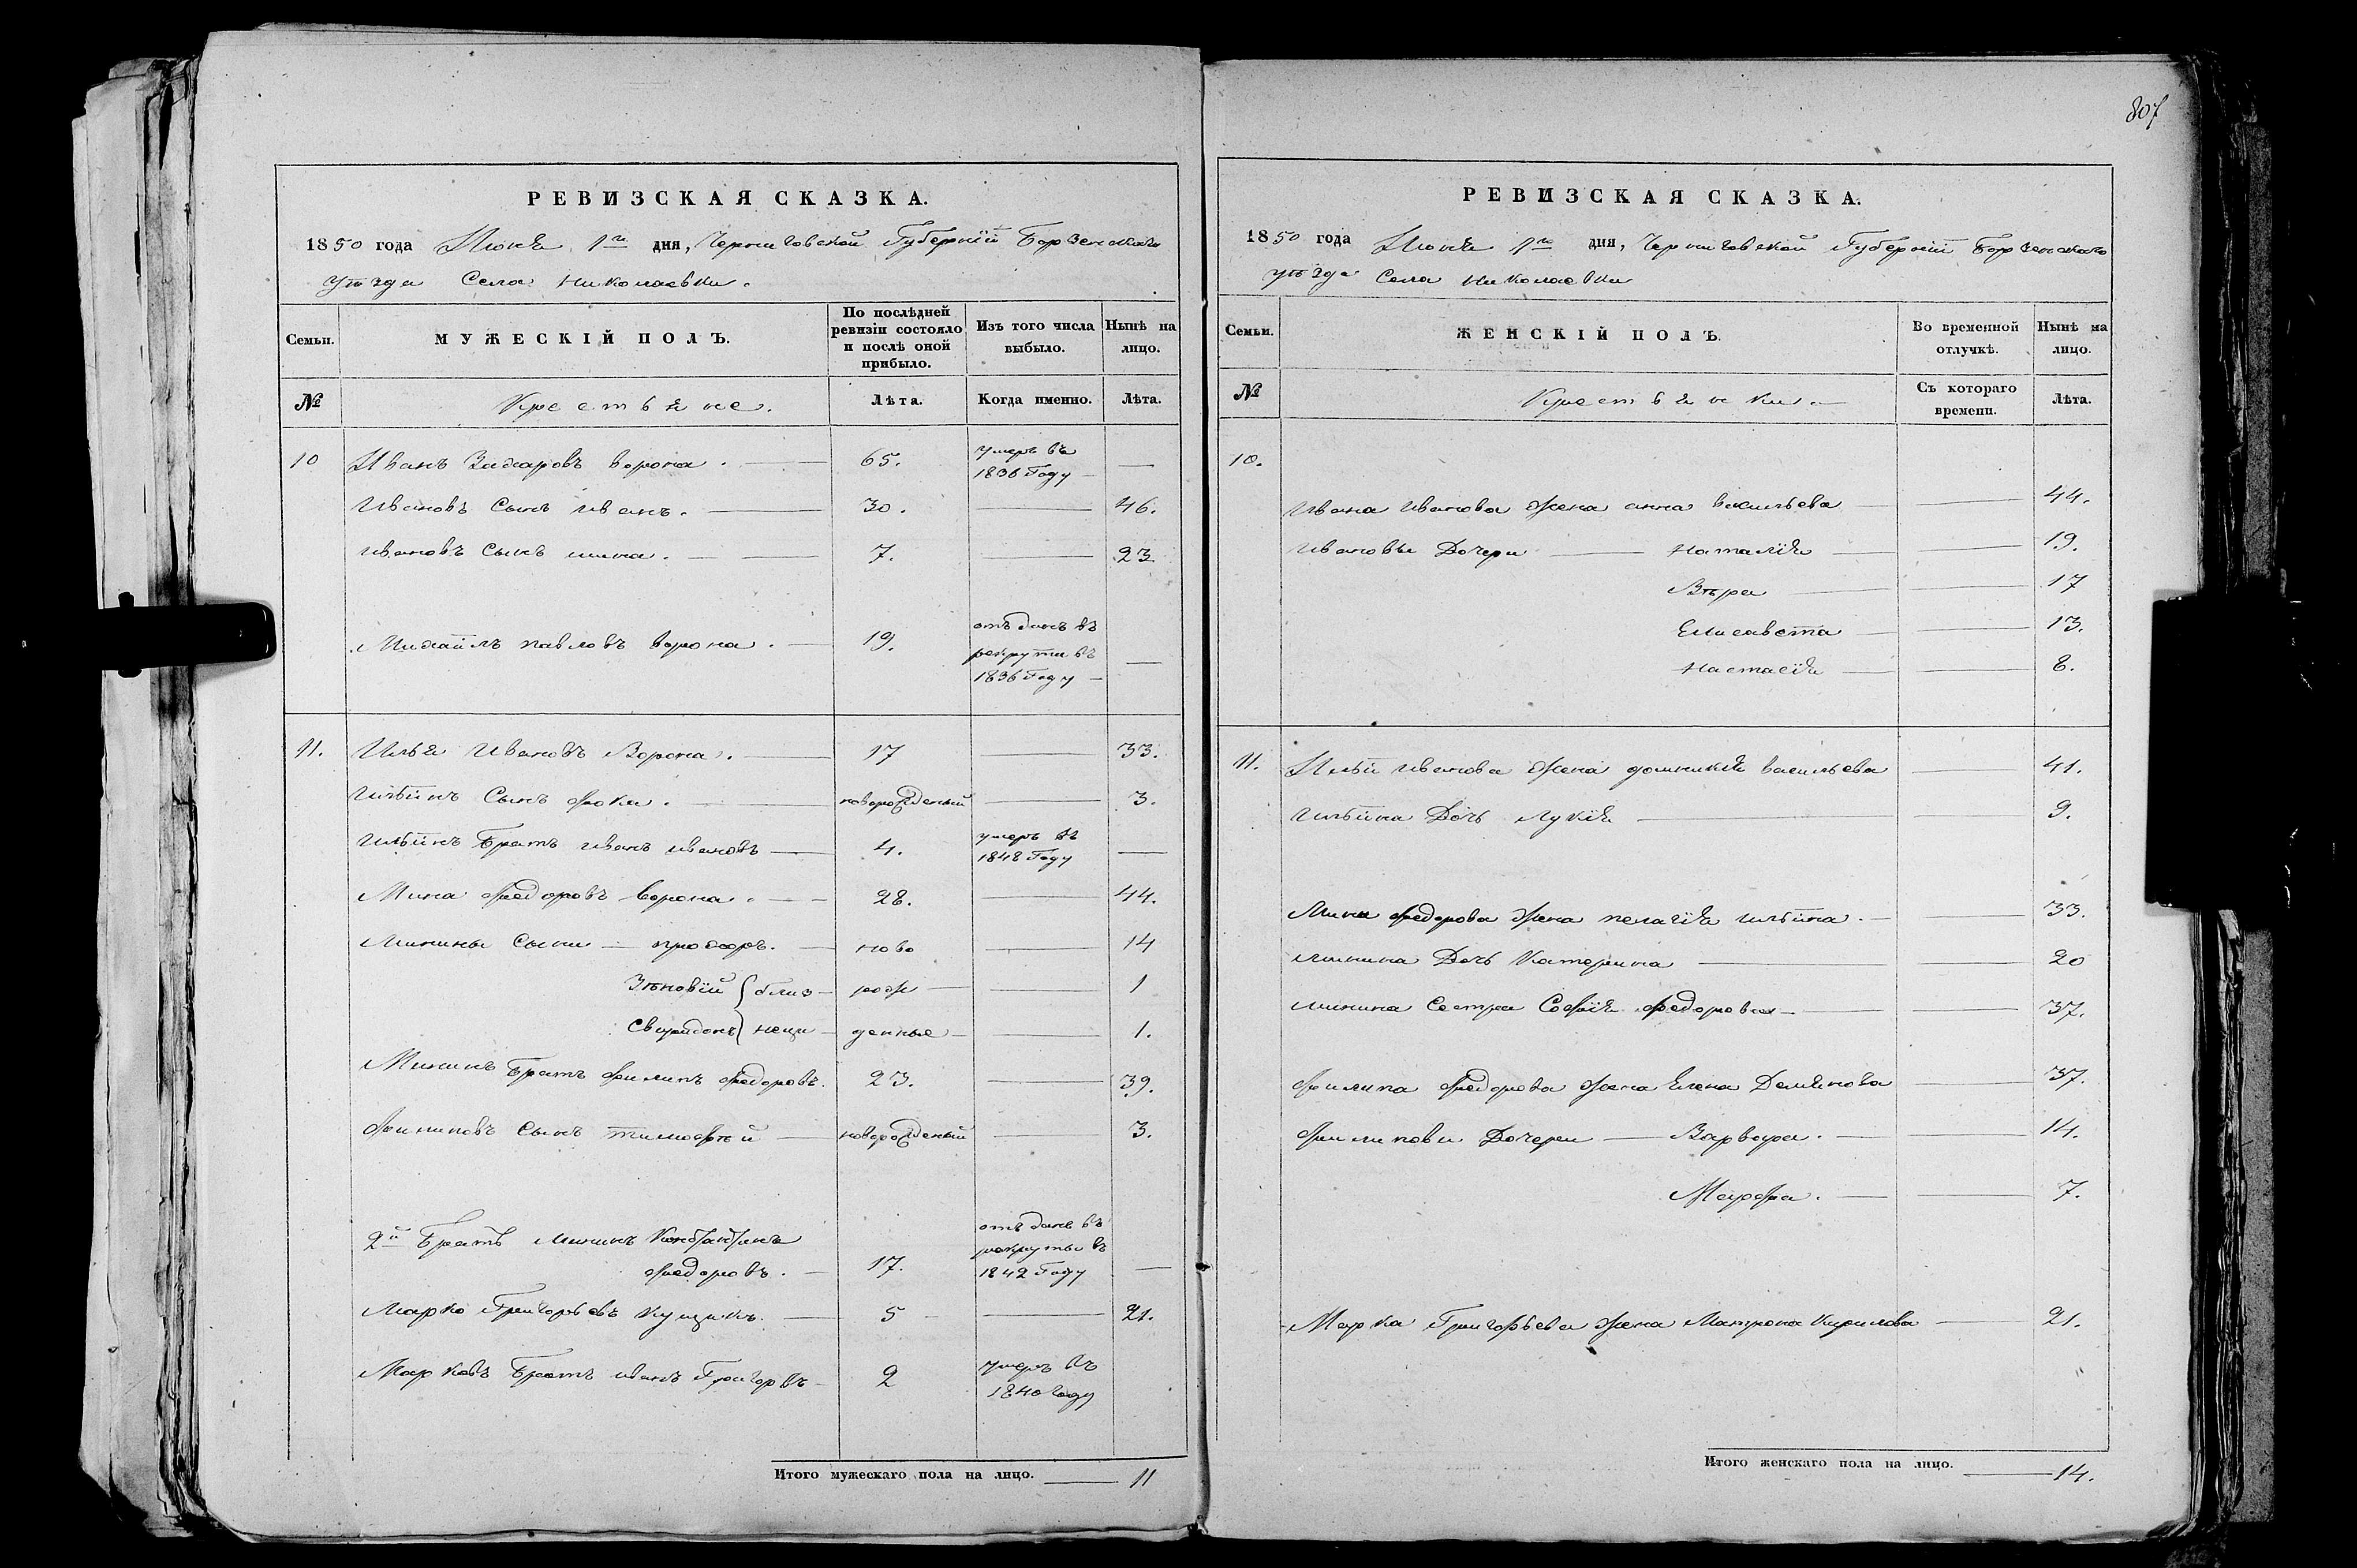 807
РЕВИЗСКАЯ СКАЗКА.
1850 года Июня 1го дня, Черниговской Губернїи Борзенскаго
уѣзда Села Николаевки.
Семьи.
МУЖЕСКІЙ ПОЛЪ.
По послѣдней
ревизіи состояло
и послѣ оной
прибыло.
Изъ того числа
выбыло.
Нынѣ на
лицо.
№
Крестьяне.
Лѣта.
Когда именно.
Лѣта.
10 Иванъ Захаровъ Ворона. 65. умеръ въ
1836 Году —
Ивановъ Сынъ Иванъ. 30. — 46.
Ивановъ Сынъ мина. 7. — 23
Михаилъ павловъ ворона. 19. отъданъ въ
рекрути въ
1836 Году —
11. Илья Ивановъ Ворона. 17 — 33.
Ильїнъ Сынъ Фока. новорожденый — 3.
Ильїнъ Братъ иванъ ивановъ 4. умеръ въ
1848 Году —
Мина Федоровъ ворона. 28. — 44.
Минины Сыни — прохоръ. ново — 14
Зѣновїй { близ рож — 1
Свиридонъ } неци денные — 1.
Мининъ Братъ Филипъ Федоровъ. 23. — 39.
Филиповъ Сынъ тимофей новорожденый — 3.
2й Братъ Мининъ Константинъ
Федоровъ. 17. отъданъ въ
рекруты въ
1842 Году —
Марко Григорьевъ Куцикъ. 5 — 21.
Марковъ Братъ иванъ Григорвъ 2 умеръ въ
1840 Году
Итого мужескаго пола на лицо. — 11
РЕВИЗСКАЯ СКАЗКА.
1850 года Июня 1го дня, Черниговской Губернїи Борзенскаго
уѣзда Села Николаевки
Семьи.
ЖЕНСКІЙ ПОЛЪ.
Во временной
отлучкѣ.
Нынѣ на
лицо.
№
Крестьянки.
Съ котораго
времени.
Лѣта.
10.
Ивана Иванова Жена анна васильева — 44.
Ивановы Дочери — Наталїя — 19.
Вѣра — 17
Елисавета — 13.
Настасїя — 8.
11. Ильи иванова Жена домникїя васильева — 41.
Ильїна Дочь Лукїя — 9.
Мины Федорова Жена пелагїя ильїна. — 33.
минина Дочь Катерина — 20
минина Сестра Софїя Федорова — 37.
Филипа Федорова Жена Елена Демянова 37.
Филипови Дочери — Варвара. — 14.
Марфа. — 7.
Марка Григорьева Жена Матрона Кирилова — 21.
Итого женскаго пола на лицо. — 14.